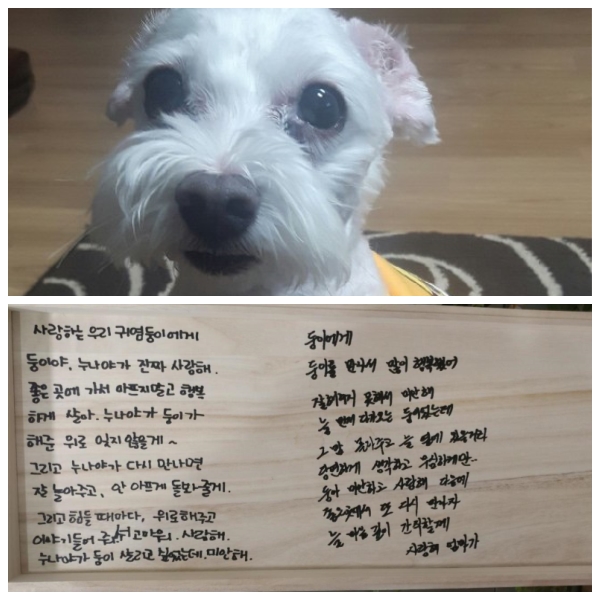 사랑하는 우리 귀염둥이에게
둥이야, 누나야가 진짜 사랑해.
좋은 곳에 가서 아프지말고 행복
하게 살아. 누나야가 둥이가
해준 위로 잊지 않을게~
그리고 누나야가 다시 만나면
잘 놀아주고, 안 아프게 돌봐줄게.
그리고 힘들 때마다, 위로해주고
이야기들어 줘서 고마워. 사랑해.
누나야가 둥이 살리고 싶었는데. 미안해.
둥이에게
둥이를 만나서 많이 행복했어
못해서 미안해
늘 먼저 다가오는 둥이였는데
그 맘 몰라주고 늘 옆에 있을거라
당연하게 생각하고 무심하게만..
둥아 미안하고 사랑해 다음에
좋은곳에서 또 다시 만나자
늘 마음 깊이 간직할게
사랑해 엄마가